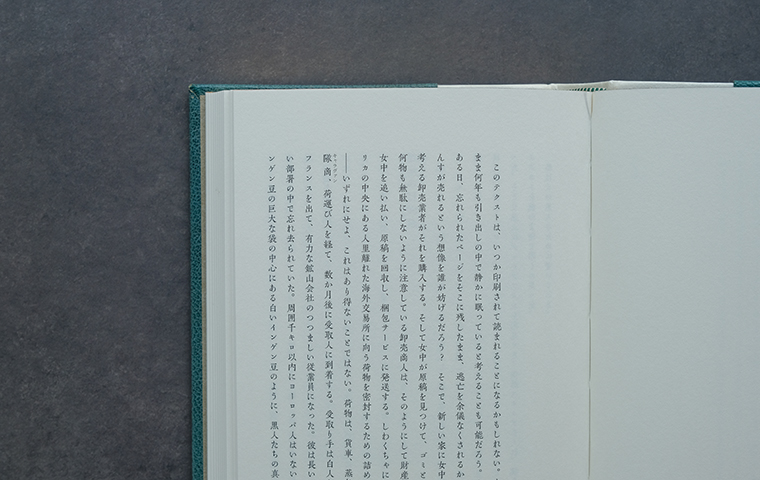 このテクストは、いつか印刷されて読まれることになるかもしれない。
まま何年も引き出しの中で静かに眠っていると考えることも可能だろう。
ある日、忘れられたページをそこに残したまま、逃亡を余儀なくされるか
んすが売れるという想像を誰が妨げるだろう? そこで、新しい家に女中
考える卸売業者がそれを購入する。そして女中が原稿を見つけて、ゴミと
何物も無駄にしないように注意している卸売商人は、そのようにして財産
女中を追い払い、原稿を回収し、梱包サービスに発送する。しわくちゃに
リカの中央にある人里離れた海外交易所に向う荷物を密封するための詰め
――いずれにせよ、これはあり得ないことではない。荷物は、貨車、蒸
隊商、荷運び人を経て、数か月後に受取人に到着する。受取り手は白人
フランスを出て、有力な鉱山会社のつつましい従業員になった。彼は長い
い部署の中で忘れ去られていた。周囲千キロ以内にヨーロッパ人はいない
ンゲン豆の巨大な袋の中心にある白いインゲン豆のように、黒人たちの真